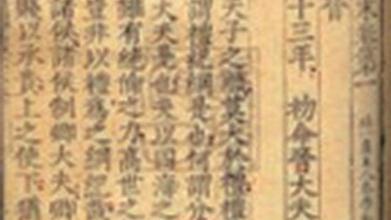 第一
十三年初命晉大夫
天子之職莫大於禮禮
謂禮紀綱是也何謂分
大夫是也夫以四海之
雖有絶倫之力高世之
豈非以禮為之綱紀哉
諸侯諸侯制卿大夫卿
賤以承貴上之使下猶